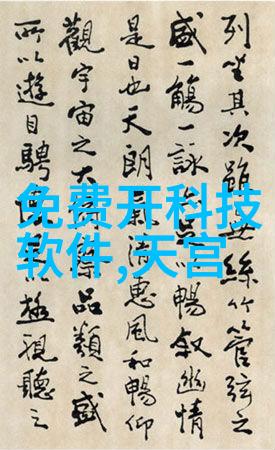 列坐其次雖無絲竹管弦之
盛一觴一詠亦足以暢敘幽情
是日也天朗氣清惠風和暢仰
觀宇宙之大俯察品類之盛
所以遊目騁極視聽之
免费开科技
软件,天宫